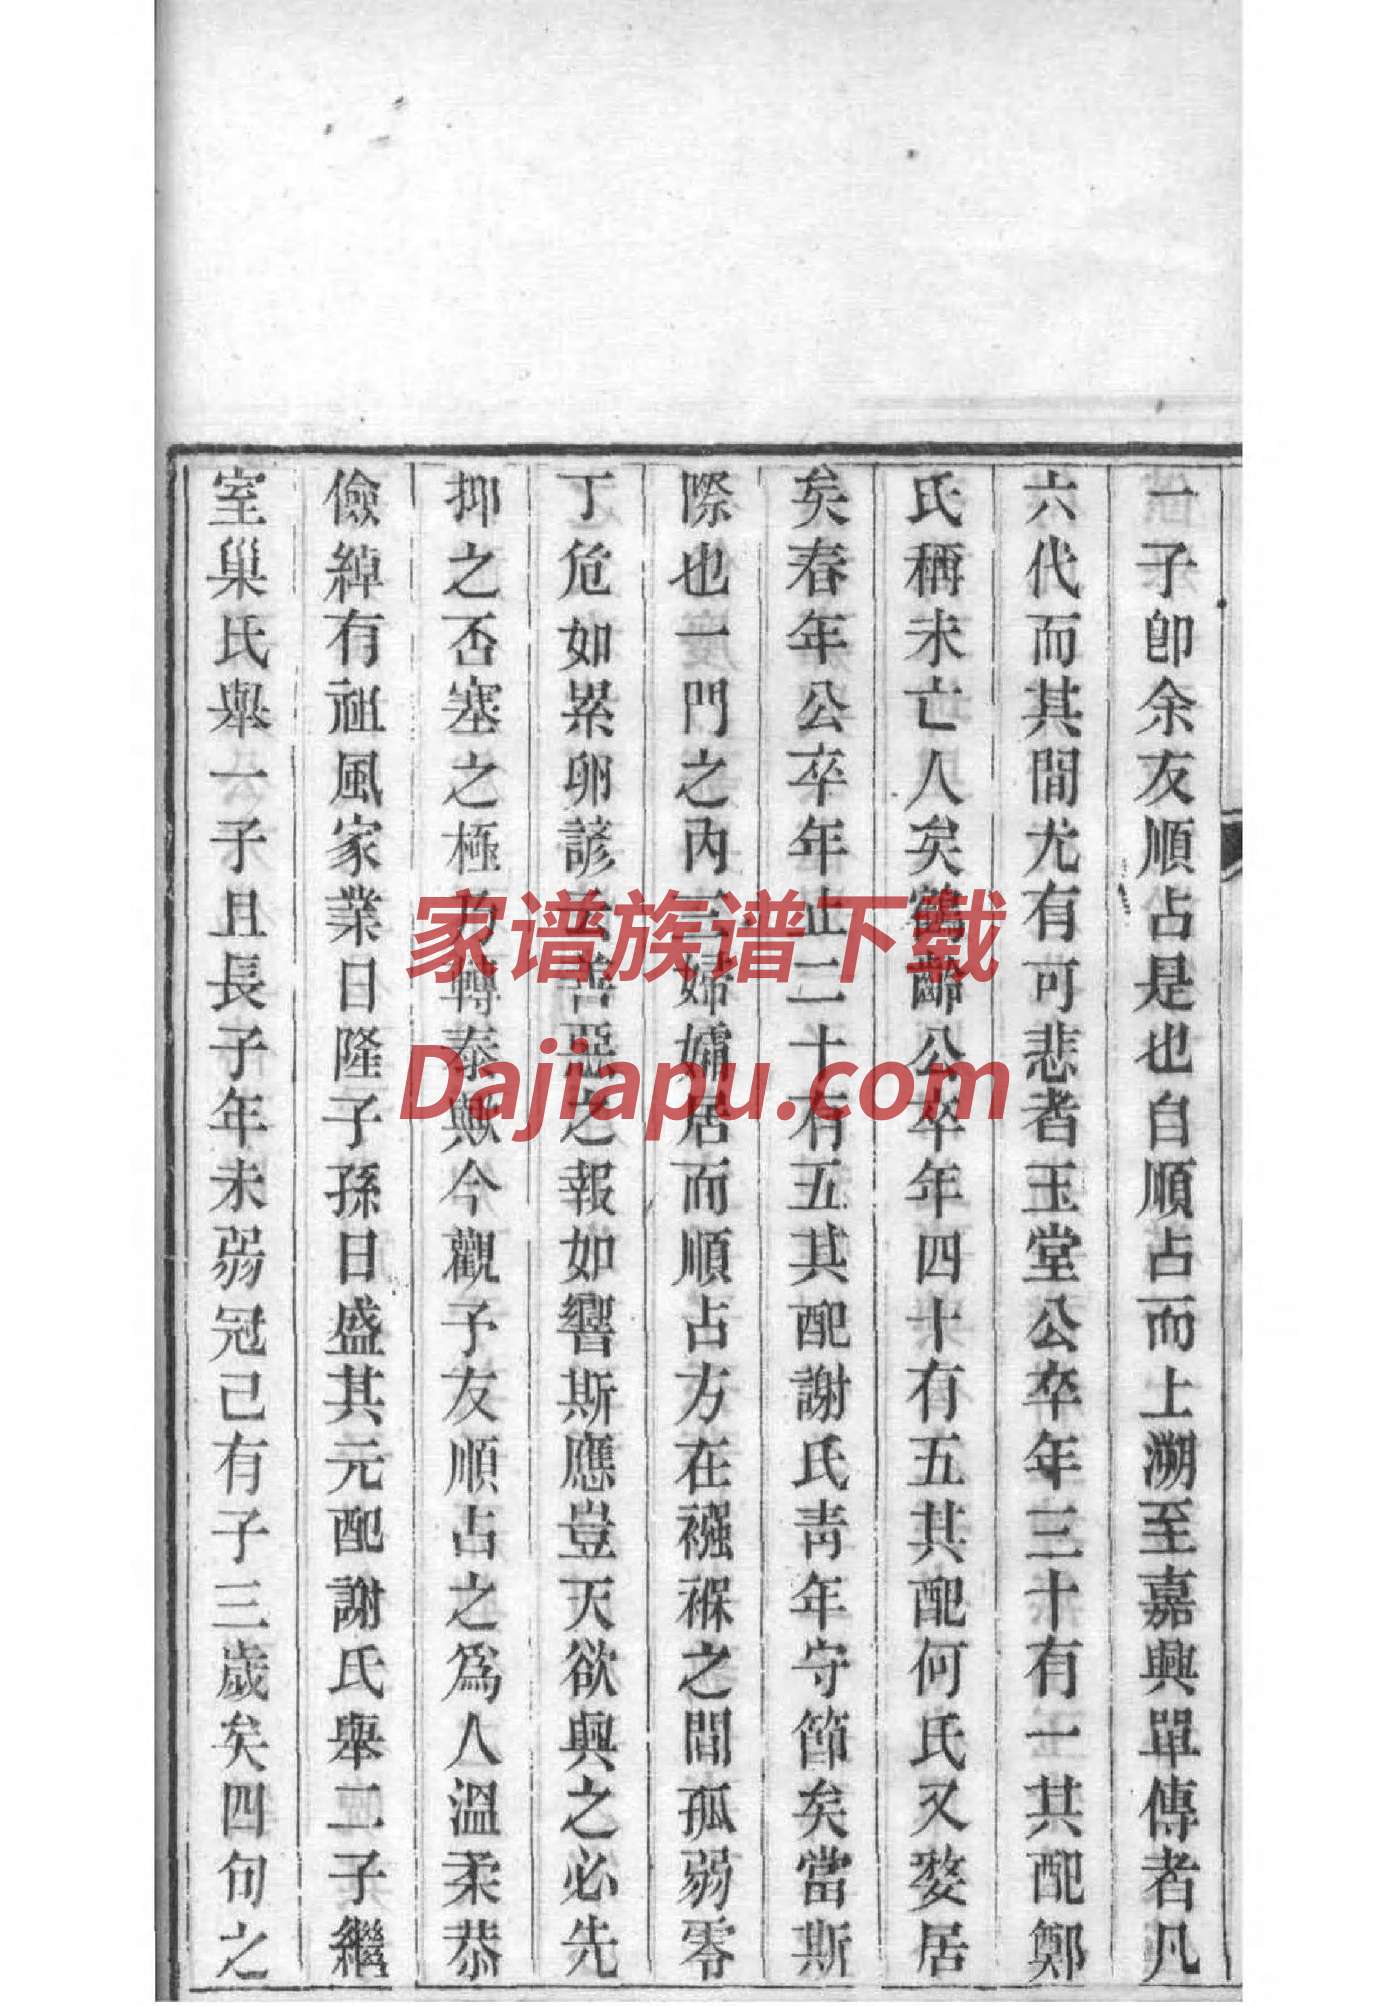 一子卽余友順占是也自順占而上溯至嘉興單傳者凡
六代而其間尤有可悲者玉堂公卒年三十有一其配鄭
氏稱未亡人矣鶴齡公卒年四十有五其配何氏又婺居
矣春年公卒年止二十有五其配謝氏靑年守節矣當斯
際也一門之內三婦孀居而順占方在襁褓之間孤弱零
丁危如累卵諺云善惡之報如響斯應豈天欲興之必先
抑之否塞之極乃轉泰歟今觀予友順占之爲人溫柔恭
儉綽有祖風家業日隆子孫日盛其元配謝氏舉二子繼
室巢氏舉一子且長子年未弱冠己有子三歲矣四旬之
家谱族谱下载
Dajiapu.com